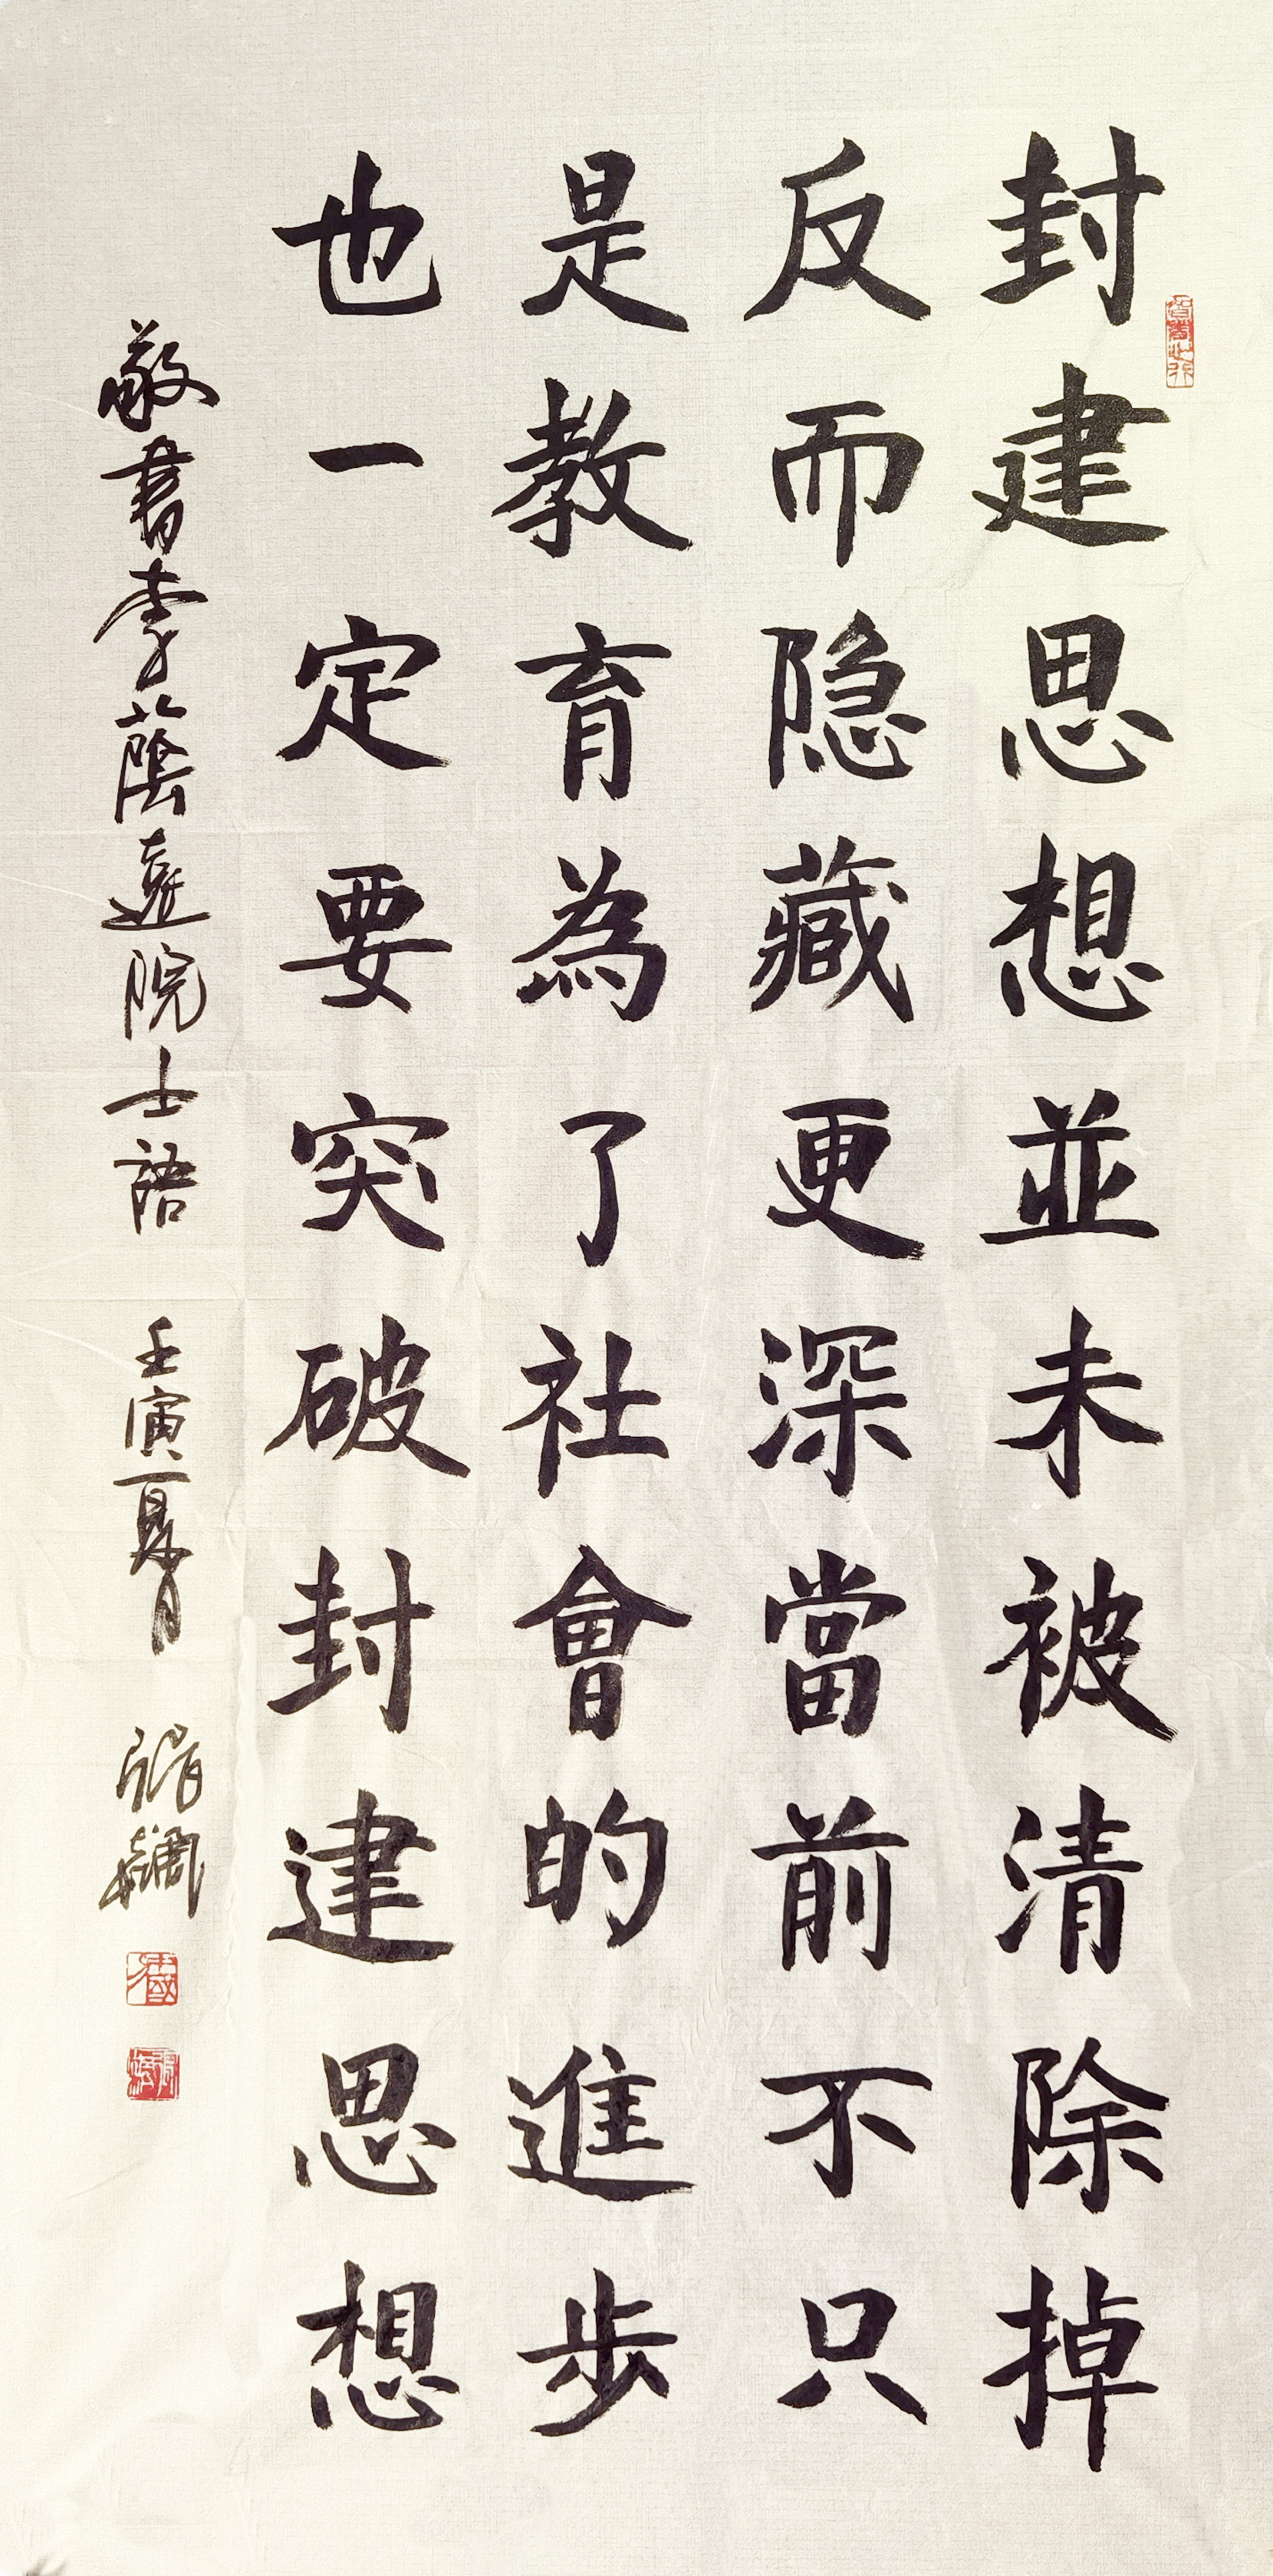 封建思想並未被清除掉
反而隐藏更深當前不只
是教育為了社會的進步
也一定要突破封建思想
敬書李蔭遠院士語 壬寅夏月 張